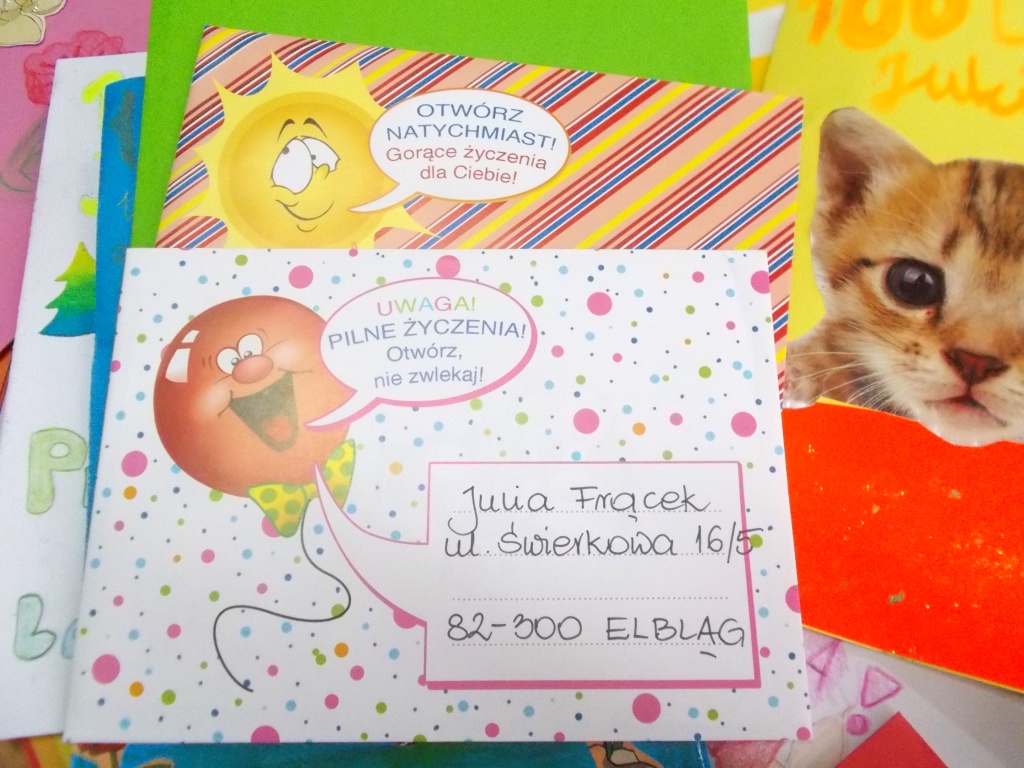 OTWÓRZ
NATYCHMIAST!
Gorące życzenia
dla Ciebie!
100
UWAGA!
PILNE ŻYCZENIA!
Otwórz,
nie zwlekaj!
Julia Frącek
ul. Świerkowa 16/5
82-300 ELBLĄG